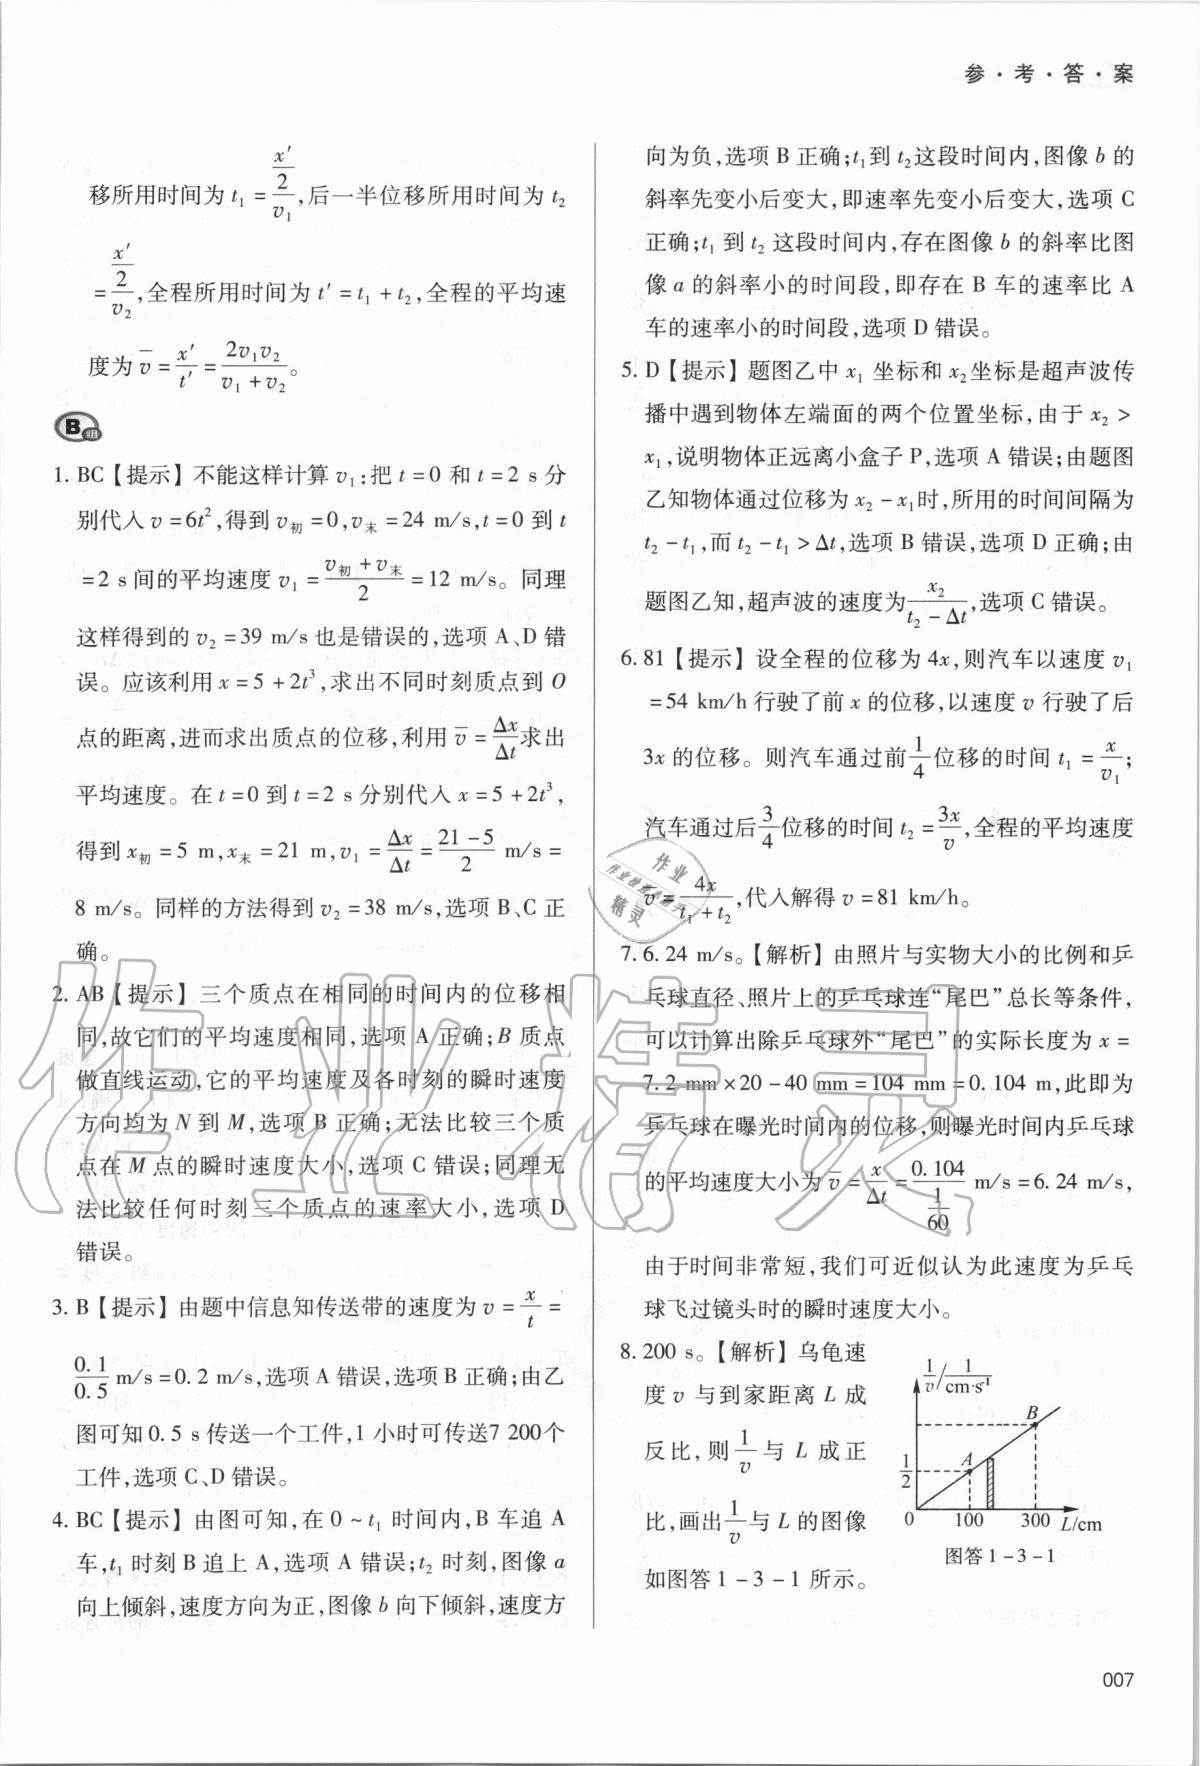 参·考·答·案
移所用时间为 t₁ = (x′/2)/v₁,后一半位移所用时间为 t₂
= (x′/2)/v₂,全程所用时间为 t′ = t₁ + t₂,全程的平均速
度为 v̄ = x′/t′ = 2v₁v₂/(v₁ + v₂)。
B组
1. BC【提示】不能这样计算 v₁:把 t = 0 和 t = 2 s 分
别代入 v = 6t²,得到 v初 = 0,v末 = 24 m/s,t = 0 到 t
= 2 s 间的平均速度 v₁ = (v初 + v末)/2 = 12 m/s。同理
这样得到的 v₂ = 39 m/s 也是错误的,选项 A、D 错
误。应该利用 x = 5 + 2t³,求出不同时刻质点到 O
点的距离,进而求出质点的位移,利用 v̄ = Δx/Δt 求出
平均速度。在 t = 0 到 t = 2 s 分别代入 x = 5 + 2t³,
得到 x初 = 5 m,x末 = 21 m,v₁ = Δx/Δt = (21 - 5)/2 m/s =
8 m/s。同样的方法得到 v₂ = 38 m/s,选项 B、C 正
确。
2. AB【提示】三个质点在相同的时间内的位移相
同,故它们的平均速度相同,选项 A 正确;B 质点
做直线运动,它的平均速度及各时刻的瞬时速度
方向均为 N 到 M,选项 B 正确;无法比较三个质
点在 M 点的瞬时速度大小,选项 C 错误;同理无
法比较任何时刻三个质点的速率大小,选项 D
错误。
3. B【提示】由题中信息知传送带的速度为 v = x/t =
0.1/0.5 m/s = 0.2 m/s,选项 A 错误,选项 B 正确;由乙
图可知 0.5 s 传送一个工件,1 小时可传送 7 200个
工件,选项 C、D 错误。
4. BC【提示】由图可知,在 0 ~ t₁ 时间内,B 车追 A
车,t₁ 时刻 B 追上 A,选项 A 错误;t₂ 时刻,图像 a
向上倾斜,速度方向为正,图像 b 向下倾斜,速度方
向为负,选项 B 正确;t₁到 t₂这段时间内,图像 b 的
斜率先变小后变大,即速率先变小后变大,选项 C
正确;t₁ 到 t₂ 这段时间内,存在图像 b 的斜率比图
像 a 的斜率小的时间段,即存在 B 车的速率比 A
车的速率小的时间段,选项 D 错误。
5. D【提示】题图乙中 x₁ 坐标和 x₂坐标是超声波传
播中遇到物体左端面的两个位置坐标,由于 x₂ >
x₁,说明物体正远离小盒子 P,选项 A 错误;由题图
乙知物体通过位移为 x₂ - x₁时,所用的时间间隔为
t₂ - t₁,而 t₂ - t₁ > Δt,选项 B 错误,选项 D 正确;由
题图乙知,超声波的速度为 x₂/(t₂ - Δt),选项 C 错误。
6. 81【提示】设全程的位移为 4x,则汽车以速度 v₁
= 54 km/h 行驶了前 x 的位移,以速度 v 行驶了后
3x 的位移。则汽车通过前 1/4 位移的时间 t₁ = x/v₁;
汽车通过后 3/4 位移的时间 t₂ = 3x/v,全程的平均速度
v̄ = 4x/(t₁ + t₂),代入解得 v = 81 km/h。
7. 6.24 m/s。【解析】由照片与实物大小的比例和乒
乓球直径、照片上的乒乓球连“尾巴”总长等条件,
可以计算出除乒乓球外“尾巴”的实际长度为 x =
7.2 mm × 20 - 40 mm = 104 mm = 0.104 m,此即为
乒乓球在曝光时间内的位移,则曝光时间内乒乓球
的平均速度大小为 v̄ = x/Δt = 0.104/(1/60) m/s = 6.24 m/s,
由于时间非常短,我们可近似认为此速度为乒乓
球飞过镜头时的瞬时速度大小。
8. 200 s。【解析】乌龟速
度 v 与到家距离 L 成
反比,则 1/v 与 L 成正
比,画出 1/v 与 L 的图像
如图答 1 - 3 - 1 所示。
1/v / 1/(cm·s⁻¹)
B
A
1/2
0 100 300 L/cm
图答 1 - 3 - 1
007
作业精灵
作业
精灵